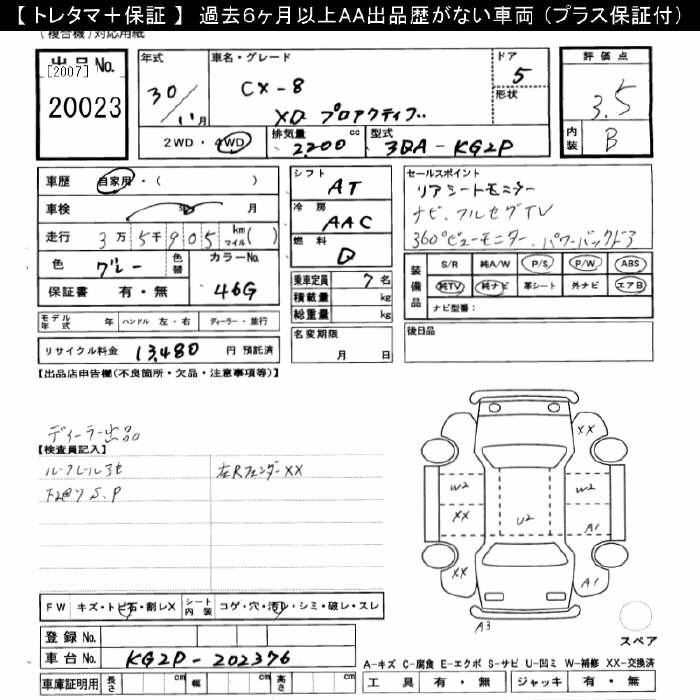 【 トレタマ＋保証 】 過去6ヶ月以上AA出品歴がない車両 (プラス保証付)
(複合機) 対応用紙
出品No.
[2007]
20023
年式
30/11月
車名・グレード
CX-8
XD プロアクティブ
ドア
5
形状
2WD・4WD
排気量 2200 cc
型式 3DA-KG2P
評価点
3.5
内装 B
車歴 自家用・( )
車検 年 月
走行 3万5千905 km マイル( )
色 グレー 色替
カラーNo. 46G
保証書 有・無
モデル年式 年 ハンドル 左・右 ディーラー・並行
リサイクル料金 13,480 円 預託済
シフト AT
冷房 AAC
燃料 D
乗車定員 7名
積載量 kg
総重量 kg
名変期限
月 日
セールスポイント
リアシートモニター
ナビ、フルセグTV
360°ビューモニター、パワーバックドア
装備品
S/R 純A/W P/S P/W ABS
純TV 純ナビ 革シート 外ナビ エアB
ナビ型番:
後日品
【出品店申告欄(不良箇所・欠品・注意事項等)】
ディーラー出品
【検査員記入】
左Rフェンダー XX
下廻り S、P
FW キズ・トビ石・割レX
シート内装 コゲ・穴・汚レ・シミ・破レ・スレ
登録 No.
車台 No. KG2P-202376
車庫証明用 長さ cm 幅 cm 高さ cm
XX
W2
W2
XX
U2
A1
XX
A1
A3
スペア
A-キズ C-腐食 E-エクボ S-サビ U-凹ミ W-補修 XX-交換済
工具 有・無 ジャッキ 有・無